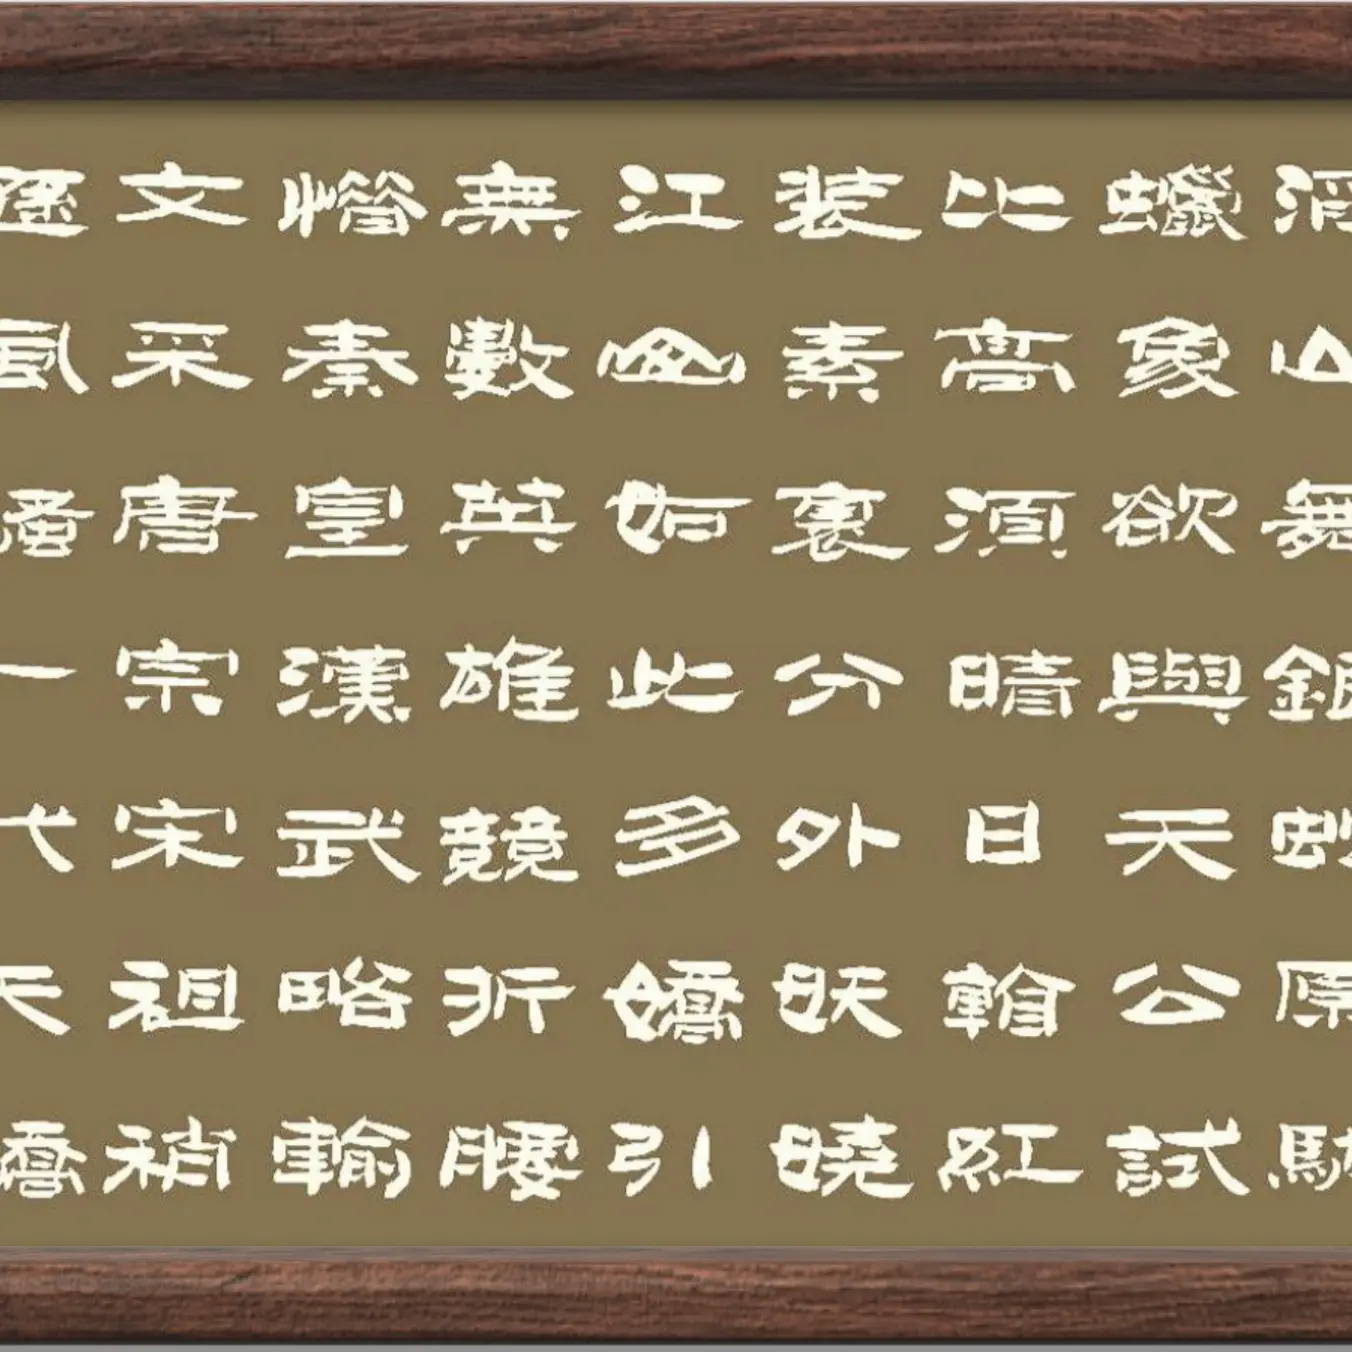 滔山舞銀蛇原馳
蠟象欲與天公試
比高須晴日看紅
装素裹分外妖嬈
江山如此多嬌引
無數英雄競折腰
惜秦皇漢武略輸
文采唐宗宋祖稍
遜風騷一代天驕